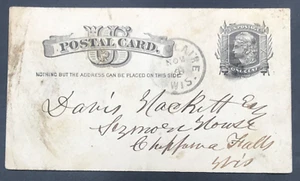 US
POSTAL CARD.
NOTHING BUT THE ADDRESS CAN BE PLACED ON THIS SIDE.
AIRE
NOV
WIS.
ONE CENT
Davis Hackett Esq
Seymour House
Chippewa Falls
Wis